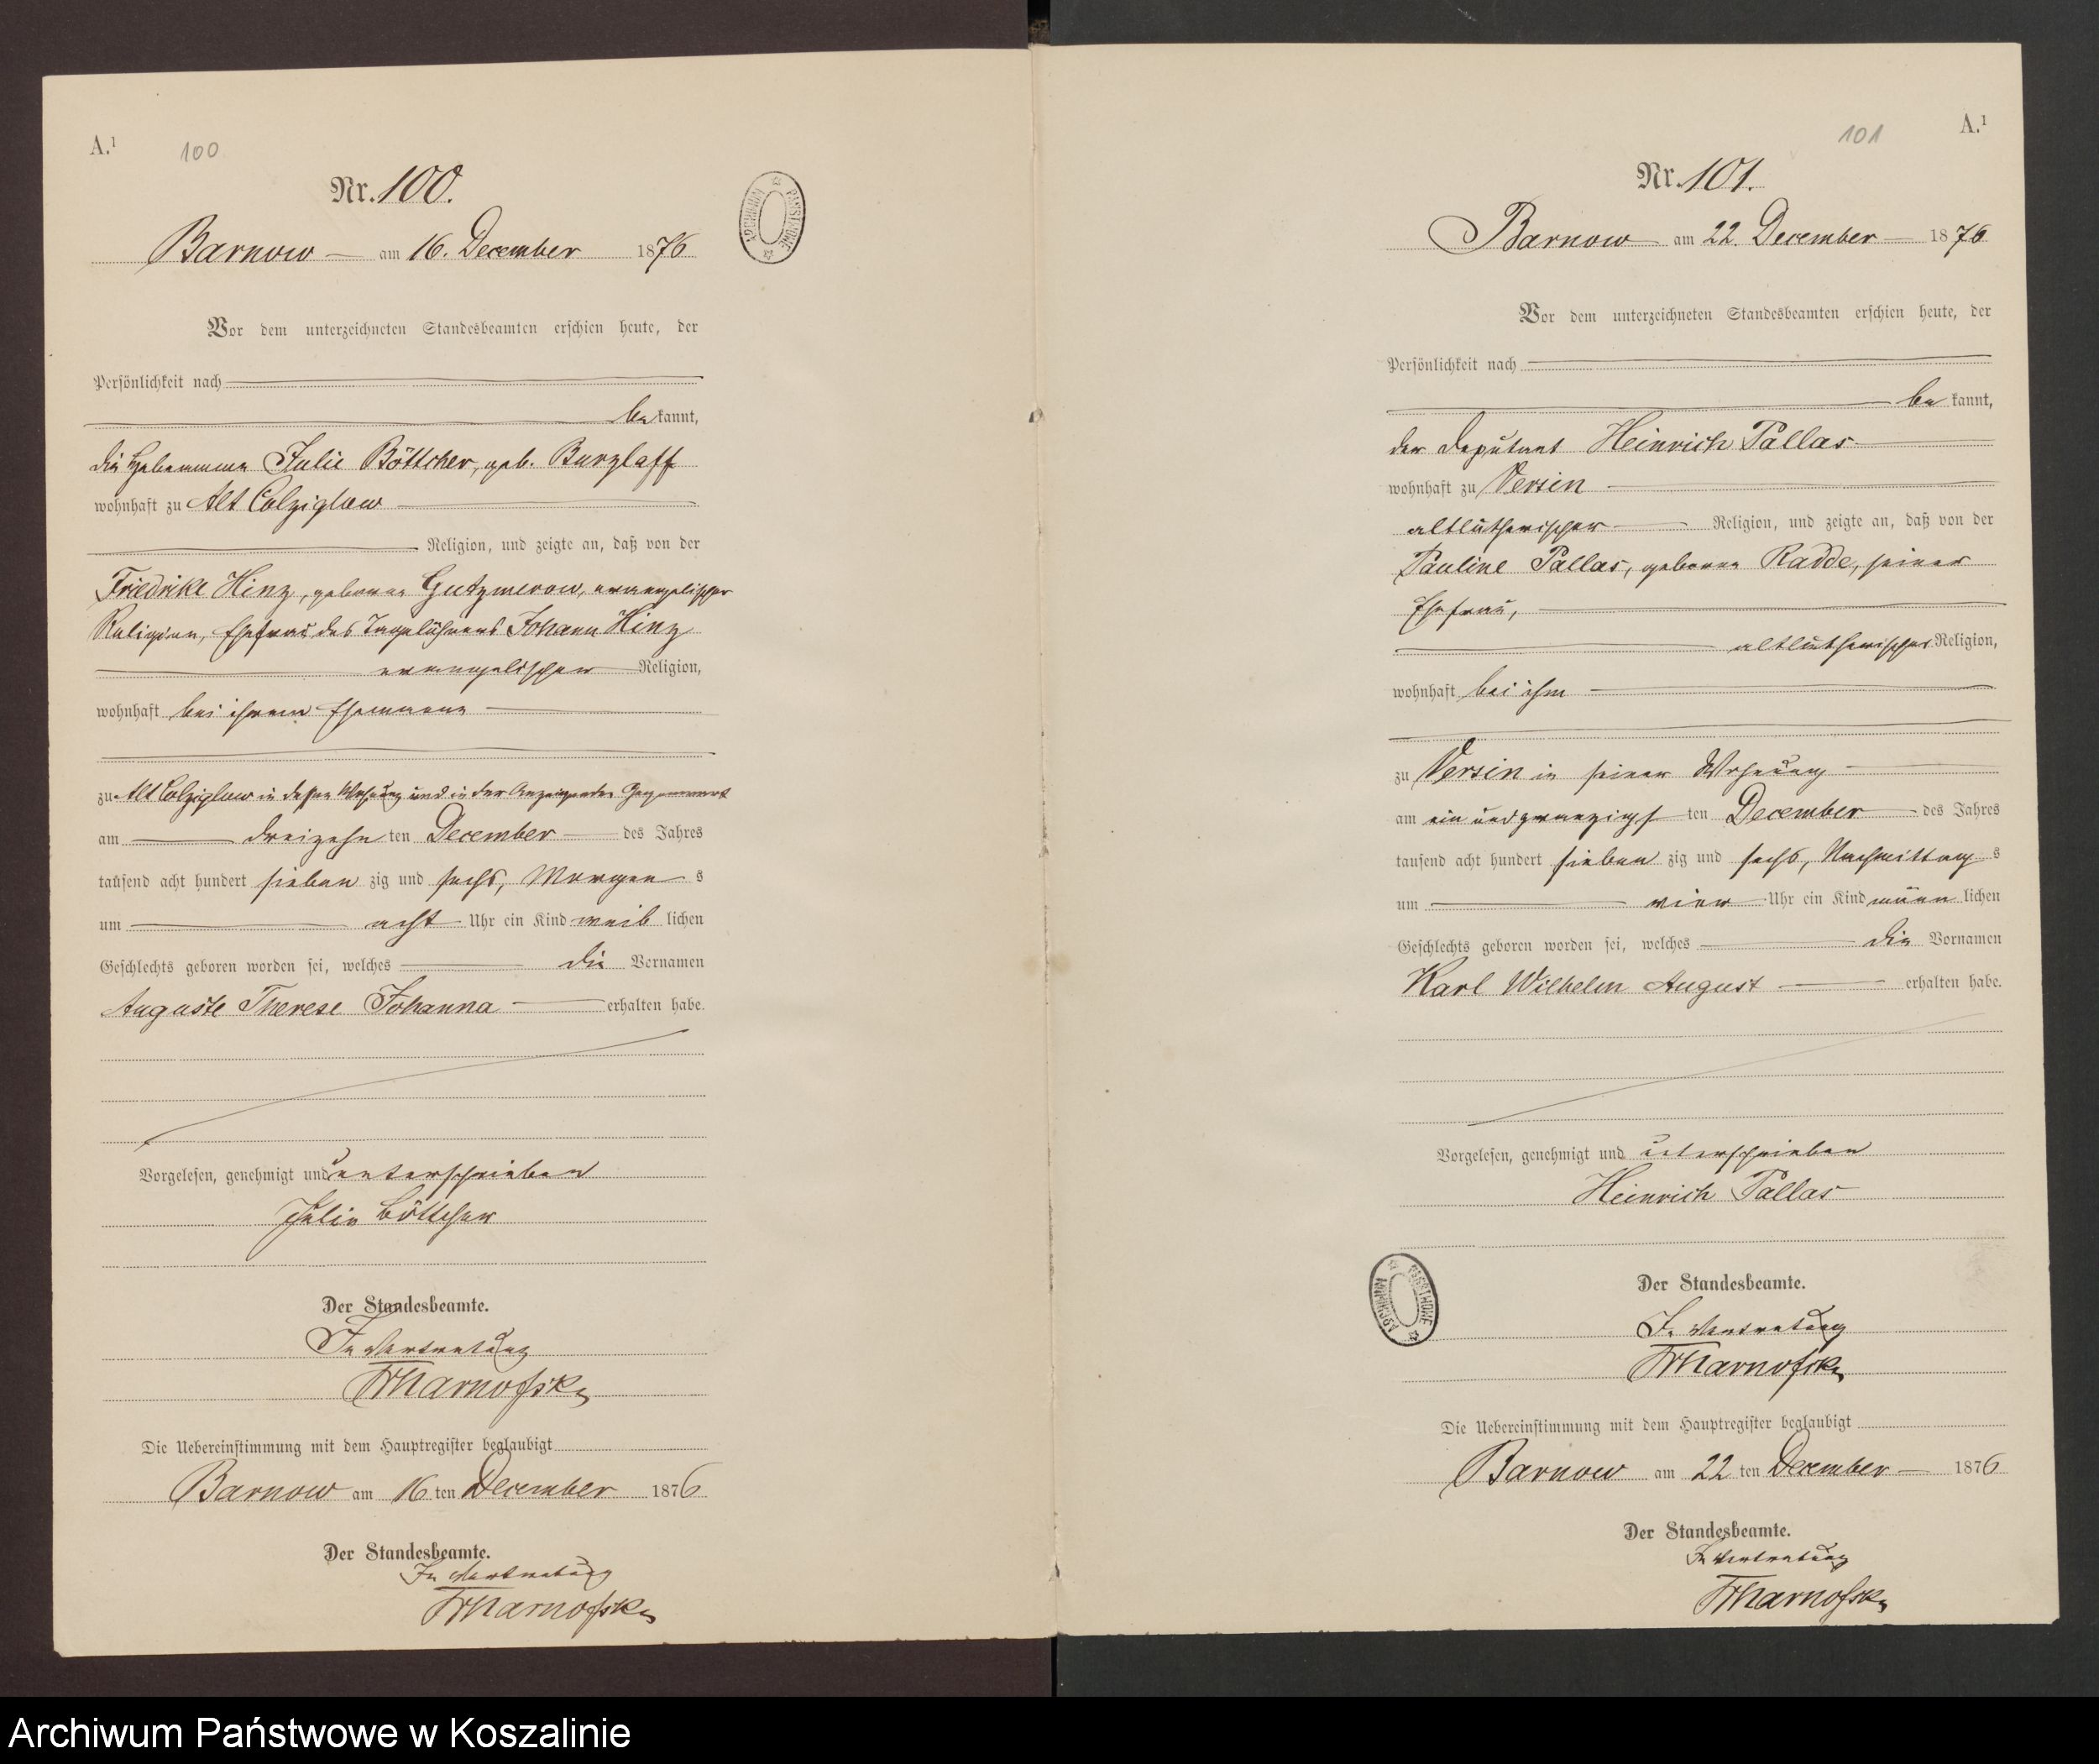 A.¹ 100
Nr. 100.
Barnow am 16. December 1876
Vor dem unterzeichneten Standesbeamten erschien heute, der
Persönlichkeit nach
bekannt,
die Hebamme Julie Böttcher, geb. Burzlaff
wohnhaft zu Alt Colziglow
Religion, und zeigte an, daß von der
Friedrike Hinz, geborne Gutzmerow, evangelischer
Religion, Ehefrau des Tagelöhners Johann Hinz
evangelischer Religion,
wohnhaft bei ihrem Ehemanne
zu Alt Colziglow in dessen Wohnung und in der Anzeigenden Gegenwart
am dreizehn ten December des Jahres
tausend acht hundert sieben zig und sechs, Morgen s
um acht Uhr ein Kind weib lichen
Geschlechts geboren worden sei, welches die Vornamen
Auguste Therese Johanna erhalten habe.
Vorgelesen, genehmigt und unterschrieben
Julie Böttcher
Der Standesbeamte.
In Vertretung
Die Uebereinstimmung mit dem Hauptregister beglaubigt
Barnow am 16 ten December 1876
Der Standesbeamte.
In Vertretung
ARCHIWUM PAŃSTWOWE
101 A.¹
Nr. 101.
Barnow am 22. December 1876
Vor dem unterzeichneten Standesbeamten erschien heute, der
Persönlichkeit nach
bekannt,
der Deputant Heinrich Pallas
wohnhaft zu Versin
altlutherischer Religion, und zeigte an, daß von der
Pauline Pallas, geborne Radde, seiner
Ehefrau,
altlutherischer Religion,
wohnhaft bei ihm
zu Versin in seiner Wohnung
am ein und zwanzigs ten December des Jahres
tausend acht hundert sieben zig und sechs, Nachmittag s
um vier Uhr ein Kind männ lichen
Geschlechts geboren worden sei, welches die Vornamen
Karl Wilhelm August erhalten habe.
Vorgelesen, genehmigt und unterschrieben
Heinrich Pallas
Der Standesbeamte.
In Vertretung
Die Uebereinstimmung mit dem Hauptregister beglaubigt
Barnow am 22 ten December 1876
Der Standesbeamte.
In Vertretung
ARCHIWUM PAŃSTWOWE
Archiwum Państwowe w Koszalinie